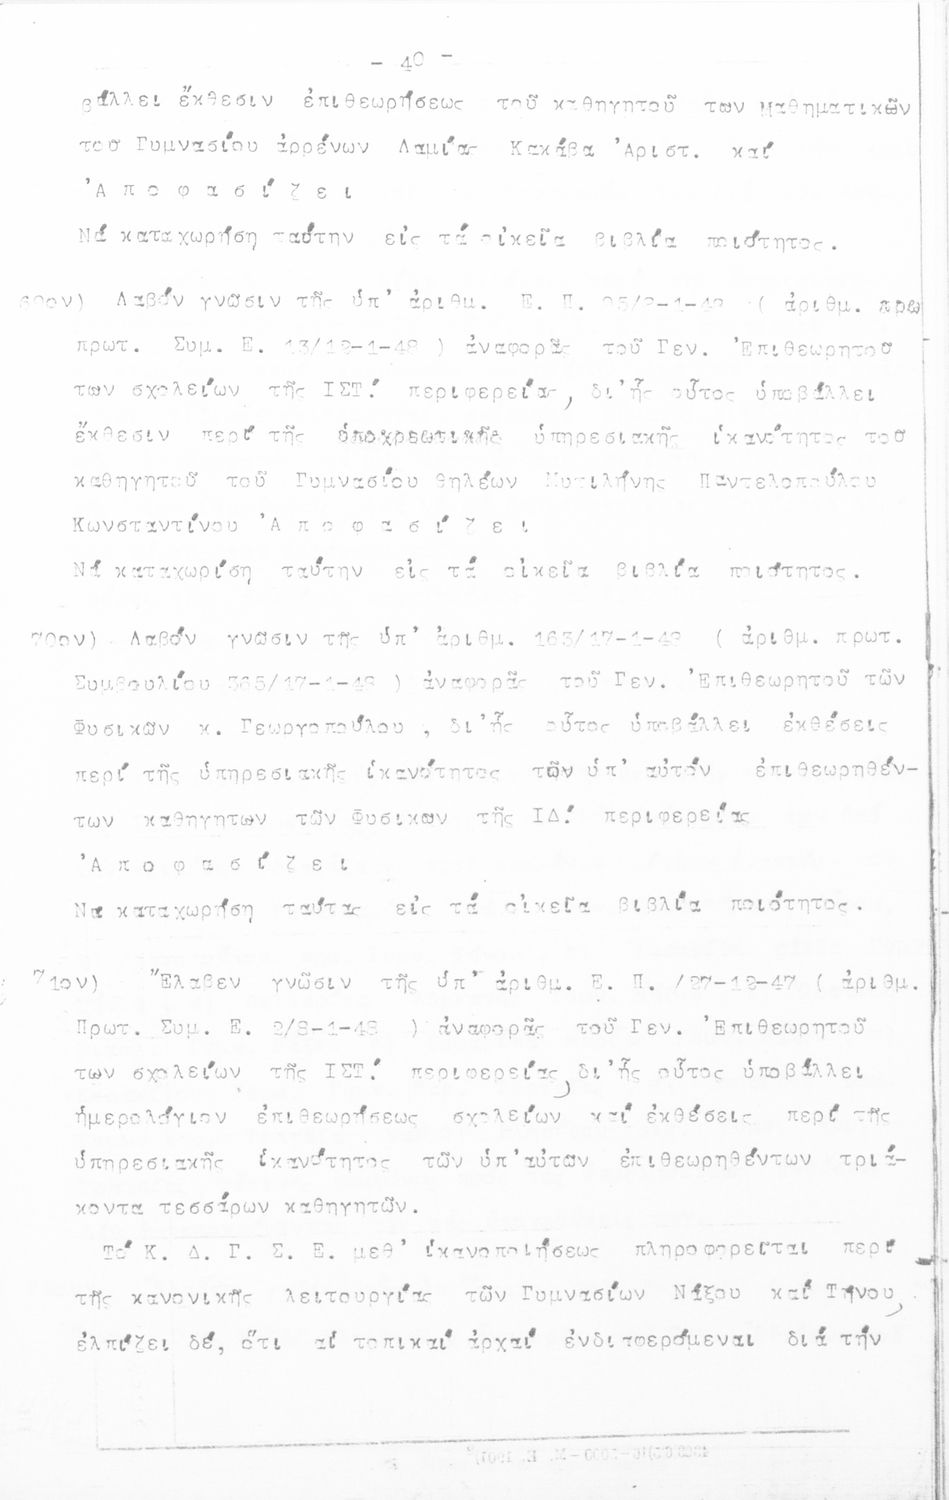 - 40 -
βάλλει ἔκθεσιν ἐπιθεωρήσεως τοῦ καθηγητοῦ των Μαθηματικῶν
τοῦ Γυμνασίου ἀρρένων Λαμίας Κακάβα Ἀριστ. καί
Ἀ π ο φ α σ ί ζ ε ι
Νά καταχωρήση ταύτην εἰς τά οἰκεῖα βιβλία ποιότητος.
Λαβόν γνῶσιν τῆς ὑπ' ἀριθμ. Ε. Π. ( ἀριθμ. πρω
πρωτ. Συμ. Ε. 13/12-1-48 ) ἀναφορᾶς τοῦ Γεν. Ἐπιθεωρητοῦ
των σχολείων τῆς ΙΣΤ! περιφερείας, δι'ἧς οὗτος ὑποβάλλει
ἔκθεσιν περί τῆς ὑπηρεσιακῆς ἱκανότητος τοῦ
καθηγητοῦ τοῦ Γυμνασίου θηλέων Μυτιλήνης Παντελοπούλου
Κωνσταντίνου Ἀ π ο φ α σ ί ζ ε ι
Νά καταχωρίση ταύτην εἰς τά οἰκεῖα βιβλία ποιότητος.
70ον) Λαβόν γνῶσιν τῆς ὑπ' ἀριθμ. 163/17-1-48 ( ἀριθμ. πρωτ.
Συμβουλίου 365/17-1-48 ) ἀναφορᾶς τοῦ Γεν. Ἐπιθεωρητοῦ τῶν
Φυσικῶν κ. Γεωργοπούλου , δι'ἧς οὗτος ὑποβάλλει ἐκθέσεις
περί τῆς ὑπηρεσιακῆς ἱκανότητος τῶν ὑπ' αὐτόν ἐπιθεωρηθέν-
των καθηγητων τῶν Φυσικων τῆς ΙΔ! περιφερείας
Ἀ π ο φ α σ ί ζ ε ι
Να καταχωρήση ταύτας εἰς τά οἰκεῖα βιβλία ποιότητος.
71ον) Ἔλαβεν γνῶσιν τῆς ὑπ' ἀριθμ. Ε. Π. /27-12-47 ( ἀριθμ.
Πρωτ. Συμ. Ε. 2/8-1-48 ) ἀναφορᾶς τοῦ Γεν. Ἐπιθεωρητοῦ
των σχολείων τῆς ΙΣΤ! περιφερείας, δι'ἧς οὗτος ὑποβάλλει
ἡμερολόγιον ἐπιθεωρήσεως σχολείων καί ἐκθέσεις περί τῆς
ὑπηρεσιακῆς ἱκανότητος τῶν ὑπ'αὐτων ἐπιθεωρηθέντων τριά-
κοντα τεσσάρων καθηγητῶν.
Τό Κ. Δ. Γ. Σ. Ε. μεθ' ἱκανοποιήσεως πληροφορεῖται περί
τῆς κανονικῆς λειτουργίας τῶν Γυμνασίων Νάξου καί Τήνου,
ἐλπίζει δέ, ὅτι αἱ τοπικαί ἀρχαί ἐνδιαφερόμεναι διά τήν